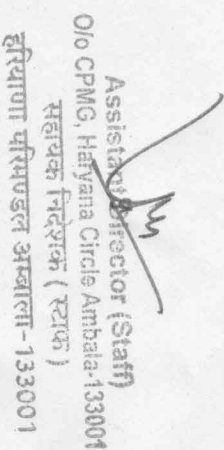 Assistant Director (Staff)
O/o CPMG, Haryana Circle Ambala-133001
सहायक निदेशक ( स्टाफ )
हरियाणा परिमण्डल अम्बाला-133001